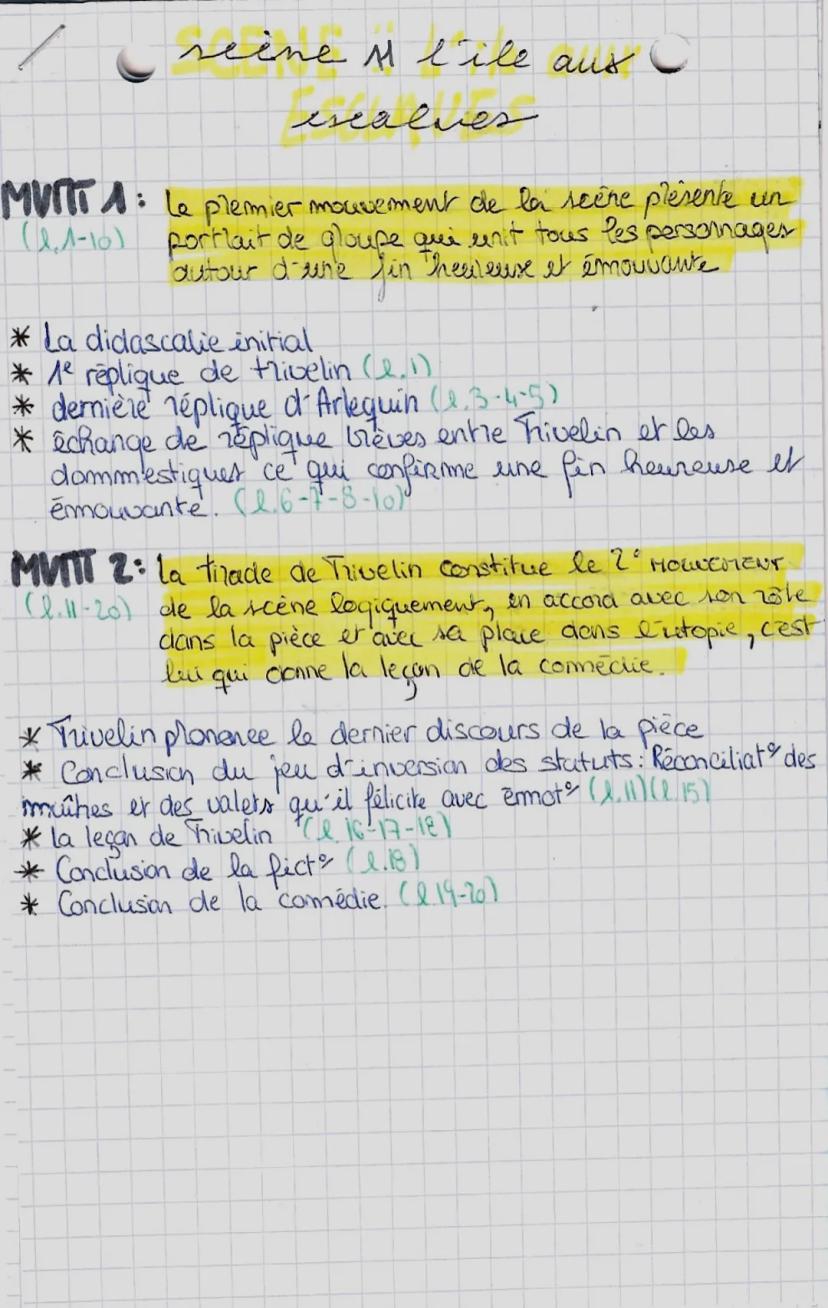 scène 11 l'île aux
escalves
MVMT 1: le premier mouvement de la scène présente un
(l.1-10) portrait de groupe qui unit tous les personnages
autour d'une fin heureuse et émouvante
* La didascalie initial
* 1e réplique de trivelin (l.1)
* dernière réplique d'Arlequin (l.3-4-5)
* échange de réplique brèves entre Trivelin et les
dommestiques ce qui confirme une fin heureuse et
émouvante. (l.6-7-8-10)
MVMT 2: la tirade de Trivelin constitue le 2e mouvement
(l.11-20) de la scène logiquement, en accord avec son rôle
dans la pièce et avec sa place dans l'utopie, c'est
lui qui donne la leçon de la comédie.
* Trivelin prononce le dernier discours de la pièce
* Conclusion du jeu d'inversion des statuts: Réconciliat° des
maîtres et des valets qu'il félicite avec émot° (l.11)(l.15)
* la leçon de Trivelin (l.16-17-18)
* Conclusion de la fict° (l.18)
* Conclusion de la comédie. (l.19-20)